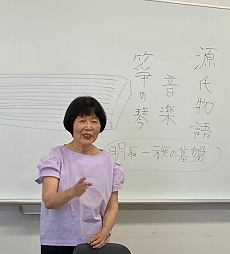 源氏物語
音楽
箏の琴
明石一族の基盤